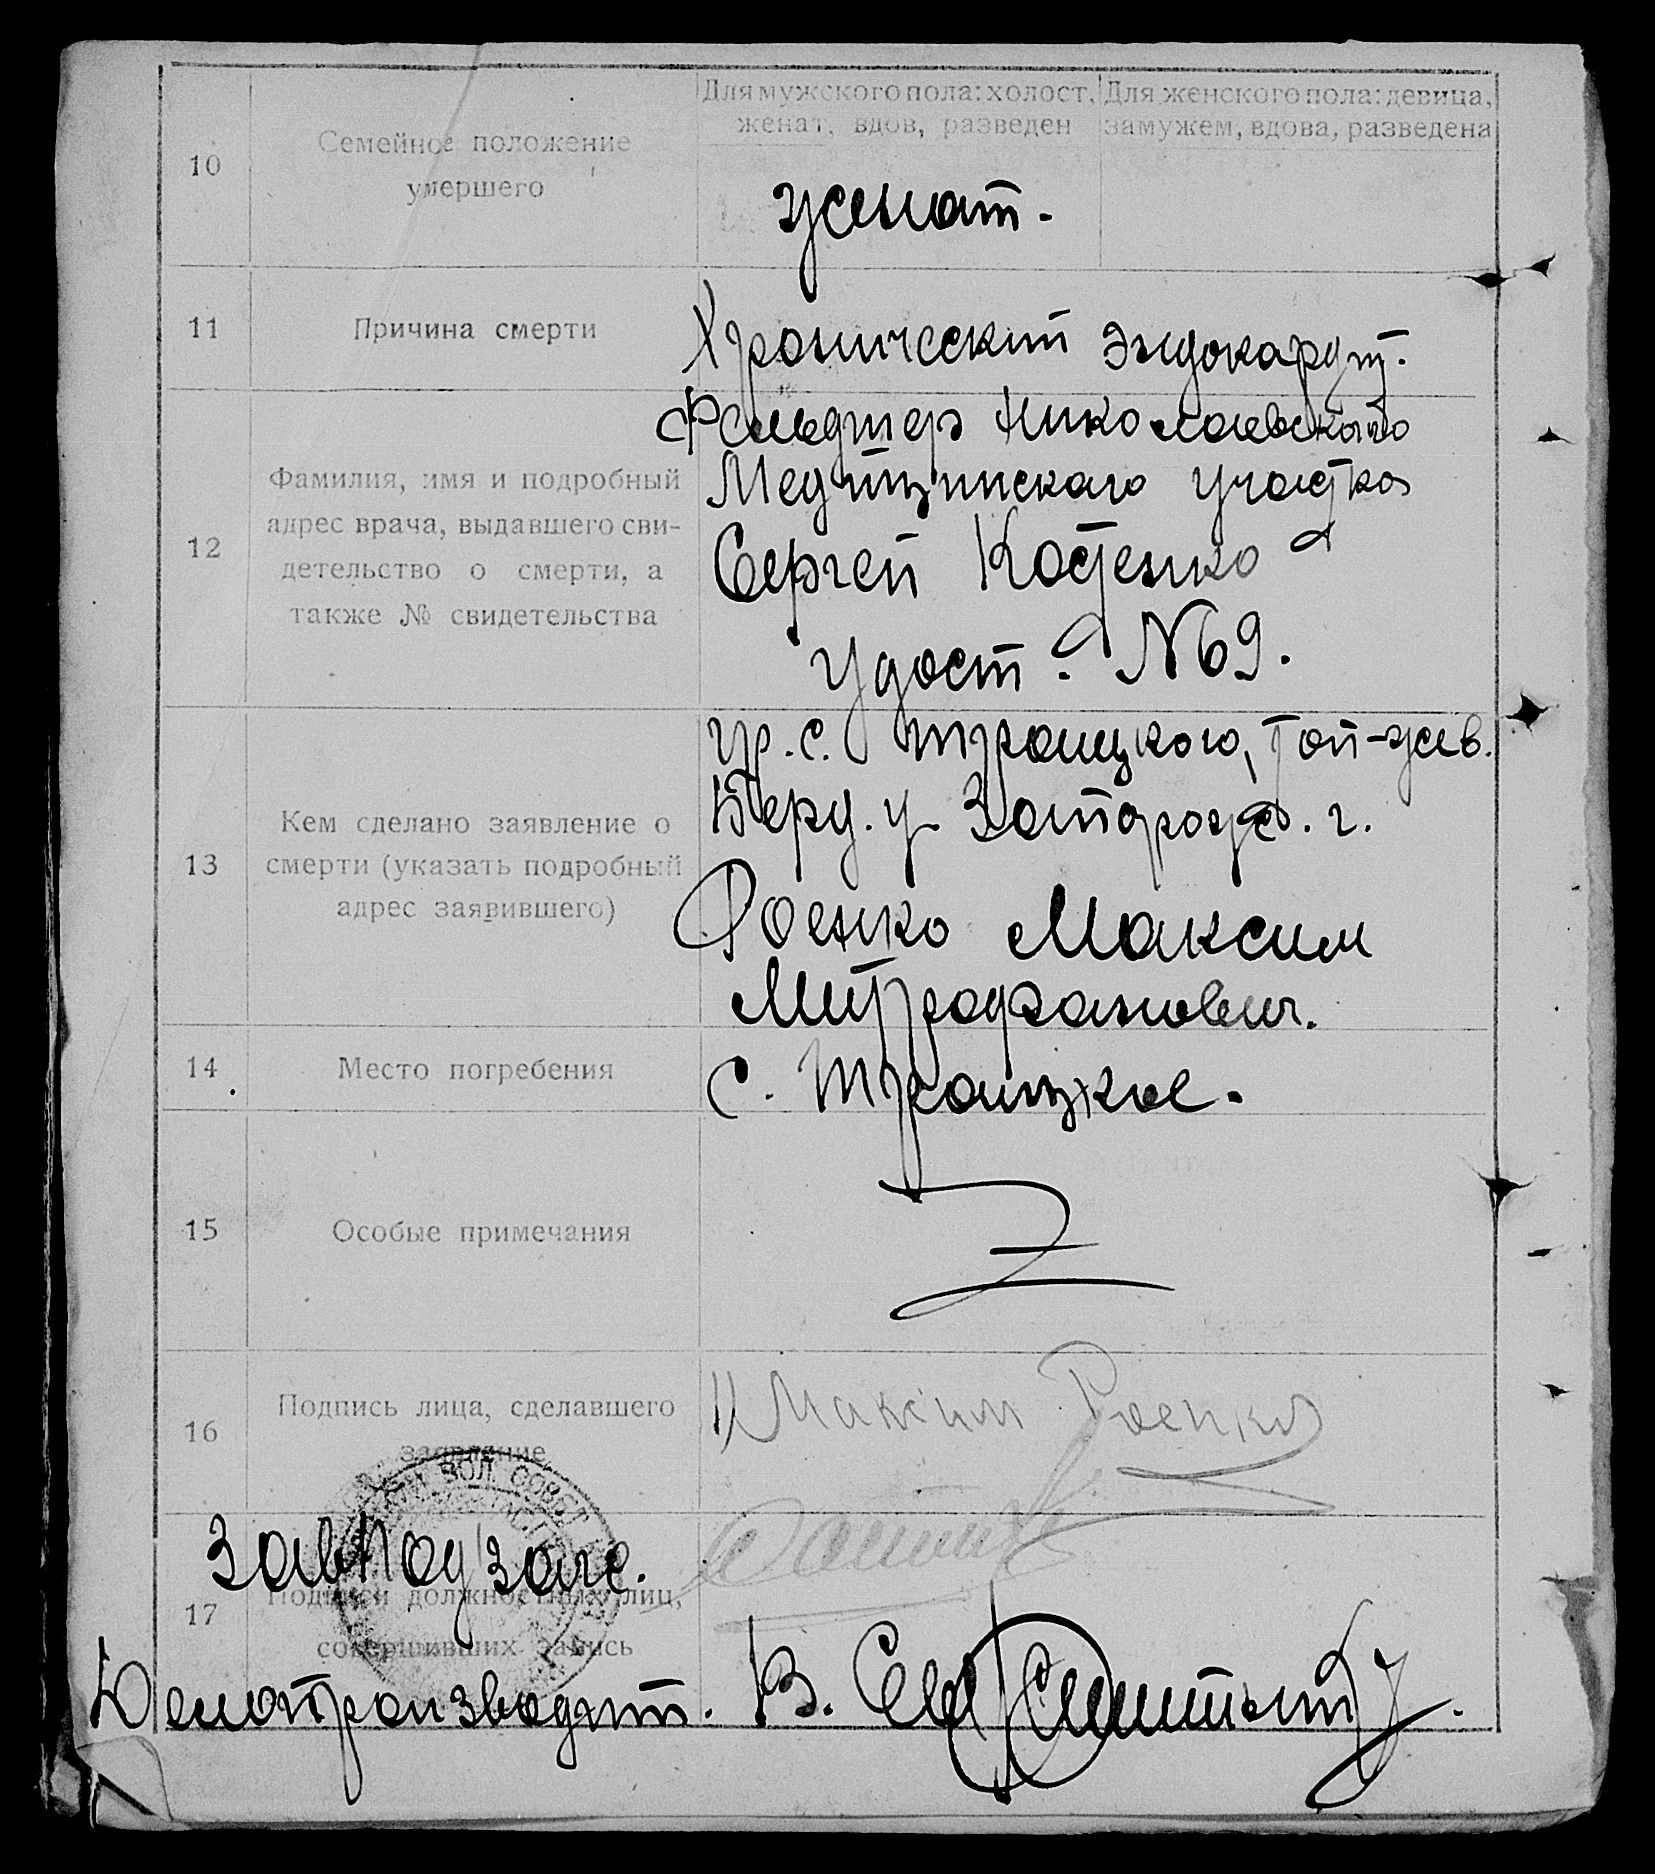 10
Семейное положение
умершего
Для мужского пола: холост,
женат, вдов, разведен
Для женского пола: девица,
замужем, вдова, разведена
женат.
11
Причина смерти
Хронический эндокардит.
12
Фамилия, имя и подробный
адрес врача, выдавшего сви-
детельство о смерти, а
также № свидетельства
Фельдшер Николаевского
Медицинского участка
Сергей Костенко
Удост. №69.
13
Кем сделано заявление о
смерти (указать подробный
адрес заявившего)
гр. с. Троицкого,
Берд. у Запорож. г.
Роенко Максим
Митрофанович.
14
Место погребения
с. Троицкое.
15
Особые примечания
16
Подпись лица, сделавшего
заявление
1) Максим Роенко
17
Подписи должностных лиц,
совершивших запись
ВОЛ. СОВЕТ
ЗавПодзагс.
Делопроизводит. В.